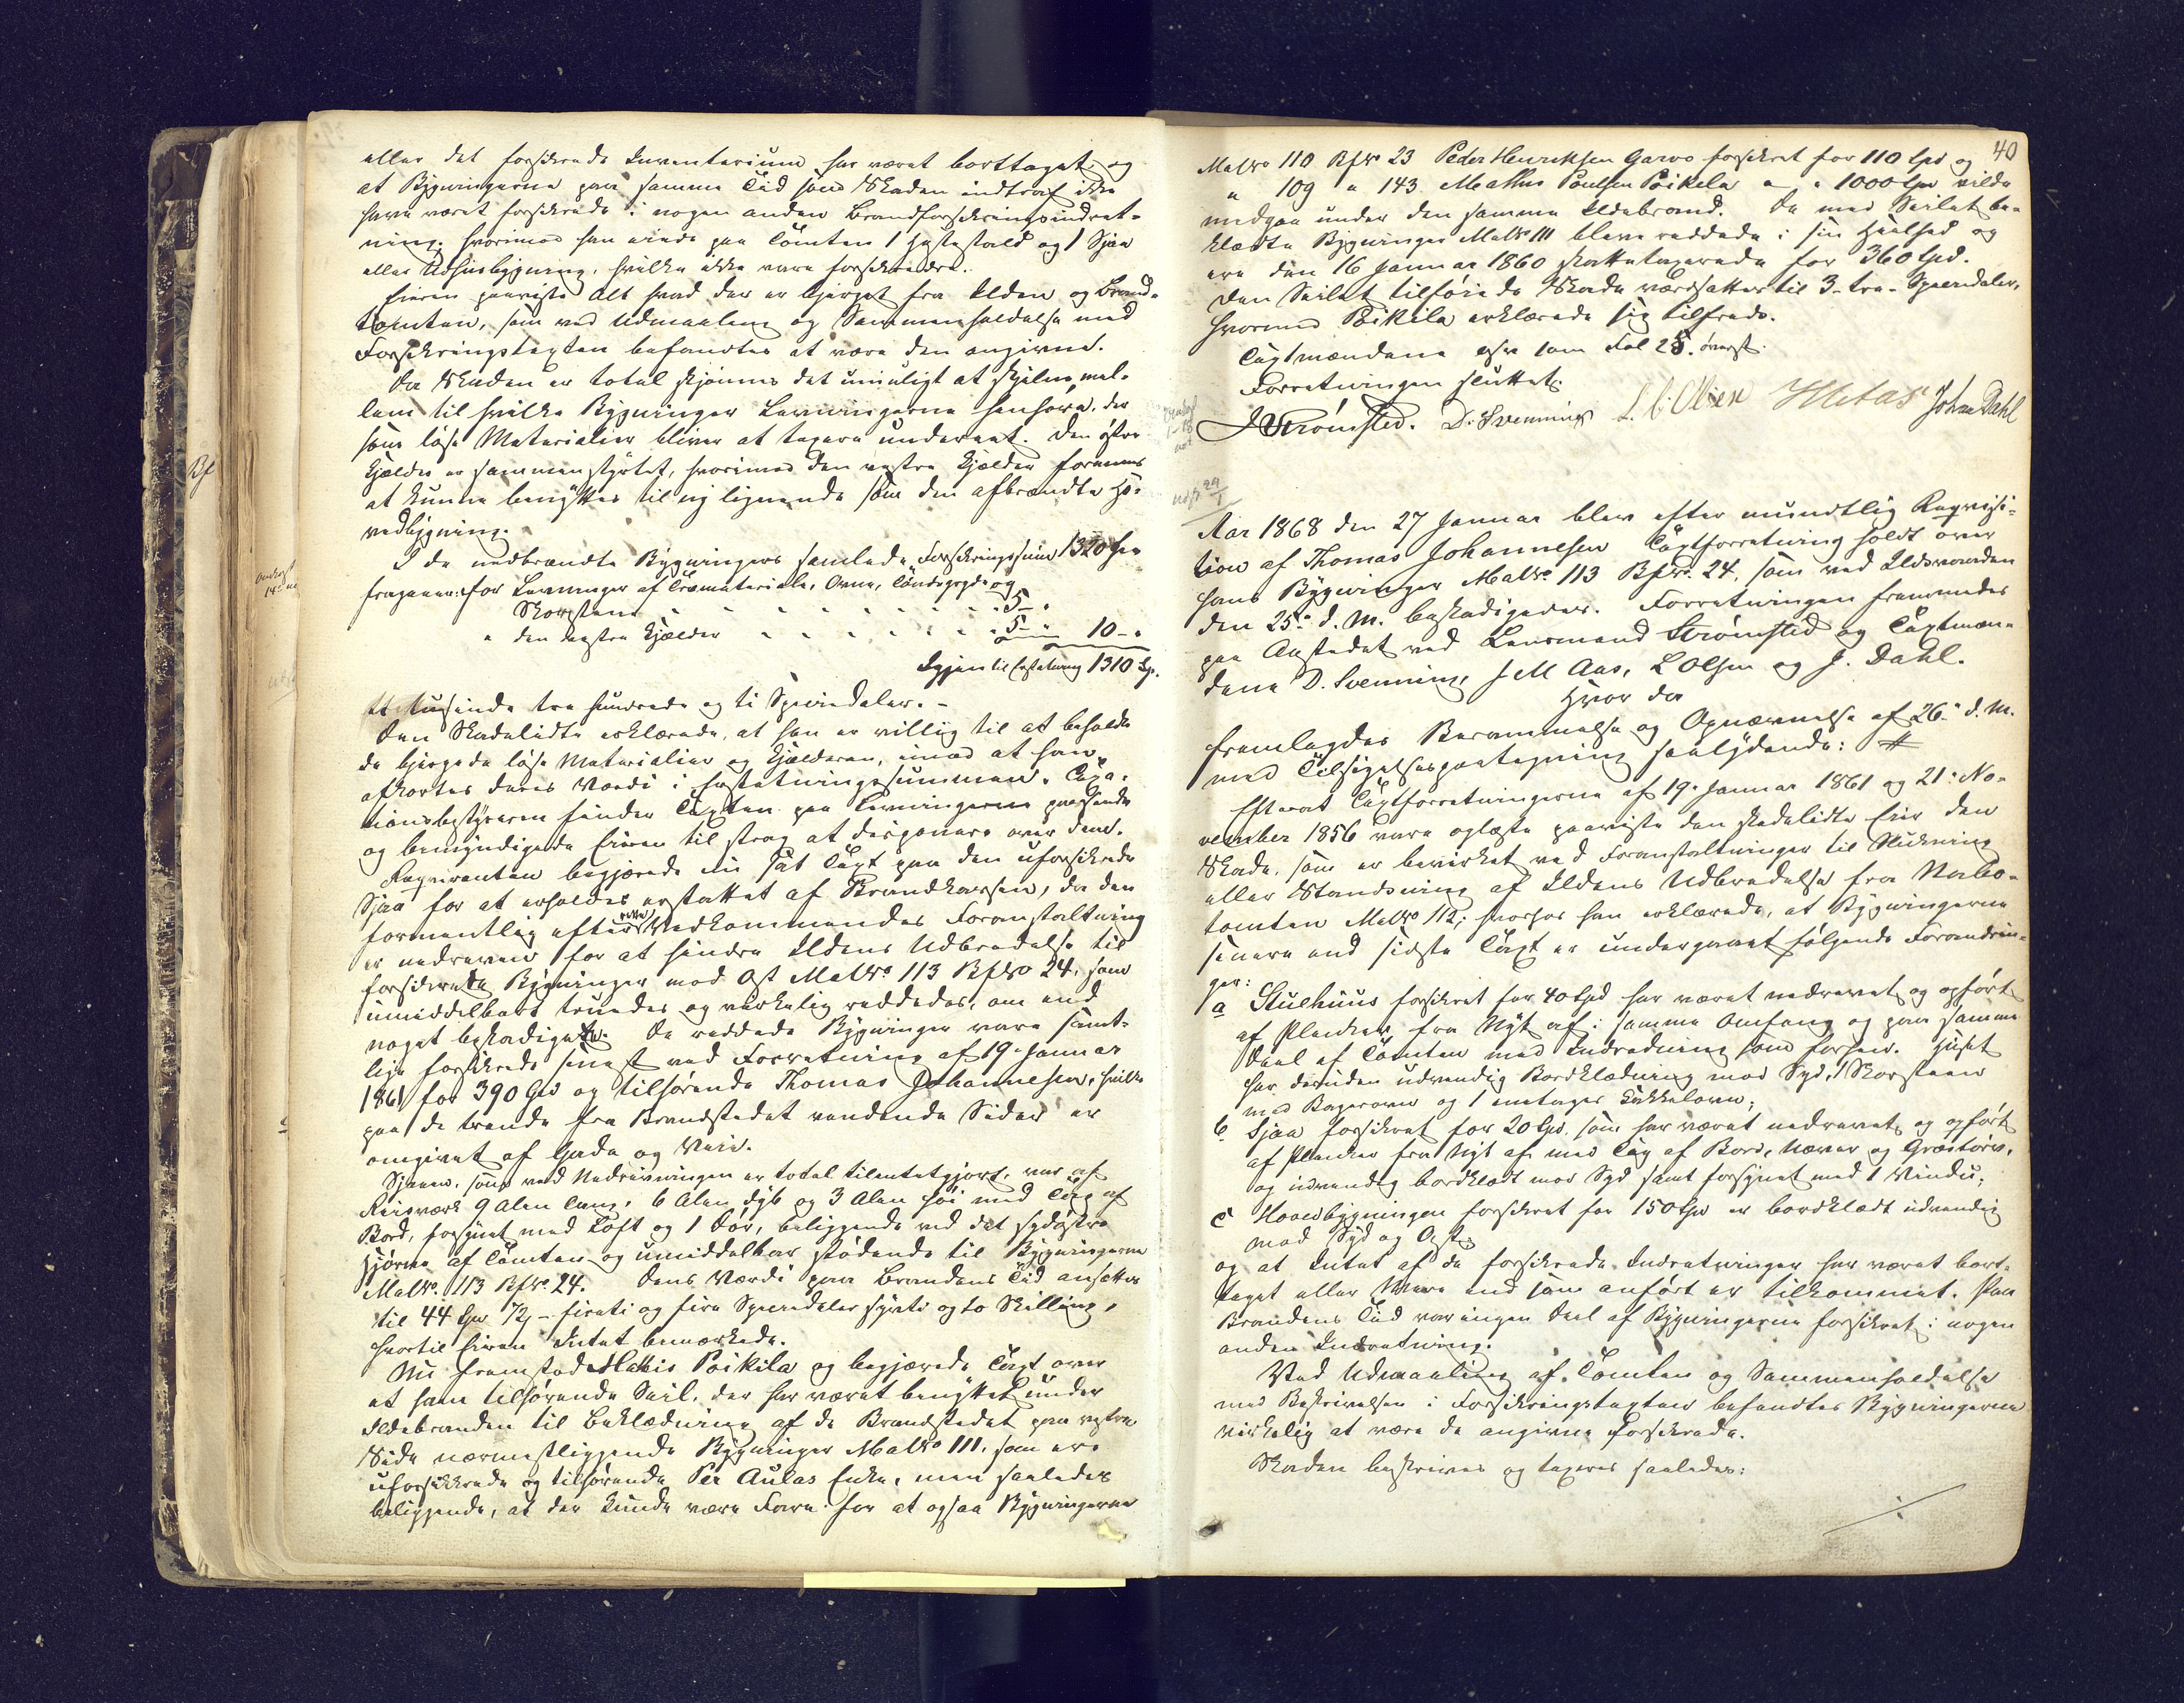 eller det forsikrede Inventarium har været borttaget og
at Bygningerne paa samme Tid som Skaden indtraf ikke
have været forsikrede i nogen anden Brandforsikringsindret-
ning, hvorimod han eiede paa Tomten 1 Hestestald og 1 Sjaa
eller Udhusbygning, hvilke ikke vare forsikrede.
Eieren paaviste Alt hvad der er bjerget fra Ilden og Brand-
tomten, som ved Udmaaling og Sammenholdelse med
Forsikringstaxten befandtes at være den angivne.
Da Skaden er total skjønnes det umuligt at skjelne mel-
lem til hvilke Bygninger Levningerne henhøre, der
som løse Materialier bliver at taxere undereet. Den østre
Kjelder er sammenstyrtet, hvorimod den vestre Kjelder formenes
at kunne benyttes til ny lignende som den afbrændte Ho-
vedbygning.
I de nedbrændte Bygningers samlede Forsikringssum 1320 Spd
fragaaer: for Levninger af Træmateriale, Ovne, og
Skorstene 5 -
" den vestre Kjelder 5 - 10 -
Igjen til Erstatning 1310 Sp.
et tusinde tre hundrede og ti Speciedaler. -
Den Skadelidte erklærede, at han er villig til at beholde
de bjergede løse Materialier og Kjelderen, imod at han
afkortes deres Værdi i Erstatningssummen. Taxa-
tionsbestyreren fandt Taxten paa Levningerne passende
og bemyndigede Eieren til strax at disponere over dem.
Requirenten begjærede nu sat Taxt paa den uforsikrede
Sjaa for at erholdes erstattet af Brandkassen, da den
formentlig efter rette Vedkommendes Foranstaltning
er nedreven for at hindre Ildens Udbredelse til
forsikrede Bygninger mod Øst MatNo 113 BfNo 24, som
umiddelbart truedes og virkelig reddedes, om end
noget beskadigede. De reddede Bygninger vare samt-
lige forsikrede senest ved Forretning af 19 Januar
1861 for 390 Spd og tilhørende Thomas Johannesen, hvilke
paa de trende fra Brandstedet vendende Sider er
omgivet af Gade og Vei.
Sjaaen, som ved Nedrivningen er total tilintetgjort, var af
Reisværk 9 Alen lang, 6 Alen dyb og 3 Alen høi med Tag af
Bord, forsynet med Loft og 1 Dør, beliggende ved det sydøstre
Hjørne af Tomten og umiddelbar stødende til Bygningerne
MatNo. 113 BfNo. 24. Dens Værdi paa Brandens Tid ansattes
til 44 Spd 72 ß - firti og fire Speciedaler sytti og to Skilling,
hvortil Eieren Intet bemærkede.
Nu fremstod Mathis Poikila og begjærede Taxt over
et ham tilhørende Seil, der har været benyttet under
Ildebranden til Beklædning af de Brandstedet paa vestre
Side nærmestliggende Bygninger MatNo 111, som ere
uforsikkrede og tilhørende Per Aulas Enke, men saaledes
beliggende, at der kunde være Fare for at ogsaa Bygningerne
40
MatNo 110 BfNo 23 Peder Henriksen Garvo forsikret for 110 Spd og
" 109 " 143 Mathis Poulsen Poikela " " 1000 Spd vilde
medgaa under den samme Ildebrand. De med Seilet be-
klædte Bygninger MatNo 111 bleve reddede i sin Heelhed og
ere den 16 Januar 1860 skattetaxerede for 360 Spd.
Den Seilet tilføiede Skade værdsattes til 3 - tre - Speciedaler,
hvormed Poikela erklærede sig tilfreds.
Taxtmændene som Fol 25. øverst.
Forretningen sluttet.
J Strømsted. D. Svenning L. C. Olsen Johan Dahl
Aar 1868 den 27 Januar blev efter mundtlig Reqvisi-
tion af Thomas Johannesen Taxtforretning holdt over
hans Bygninger MatNo. 113 BfNo. 24, som ved Ildsvaaden
den 25. d. M. beskadigedes. Forretningen fremmedes
paa Aastedet ved Lensmand Strømsted og Taxtmæn-
dene D. Svenning, J M Aas, L Olsen og J. Dahl.
Hvor da
fremlagdes Berammelse og Opnævnelse af 26. d. M.
med Tilsigelsespaategning saalydende: #
Efterat Taxtforretningerne af 19. Januar 1861 og 21. No-
vember 1856 vare oplæste paaviste den skadelidte Eier den
Skade, som er bevirket ved Foranstaltninger til Slukning
eller Standsning af Ildens Udbredelse fra Nabo-
tomten MatNo 112; hvorhos han erklærede, at Bygningerne
senere end sidste Taxt er undergaaet følgende Forandrin-
ger:
a Stuehuus forsikret for 40 Spd har været nedrevet og opført
af Planker fra Nyt af i samme Omfang og paa samme
Deel af Tomten med Indredning som forhen. Huset
har desuden udvendig Bordklædning mod Syd, 1 Skorsteen
med Bagerovn og 1 eentages Kakkelovn;
b Sjaa forsikret for 20 Spd. som har været nedrevet og opført
af Planker fra Nyt af med Tag af Bord, Næver og Græstørv,
og udvendig bordklædt mod Syd samt forsynet med 1 Vindu;
c Hovedbygningen forsikret for 150 Spd er bordklædt udvendig
mod Syd og Øst;
og at Intet af de forsikrede Indretninger har været bort-
taget eller Mere end som anført er tilkommet. Paa
Brandens Tid var ingen Deel af Bygningerne forsikret i nogen
anden Indretning.
Ved Udmaaling af Tomten og Sammenholdelse
med Beskrivelsen i Forsikringstaxten befandtes Bygningerne
virkelig at være de angivne forsikrede.
Skaden beskrives og taxeres saaledes: